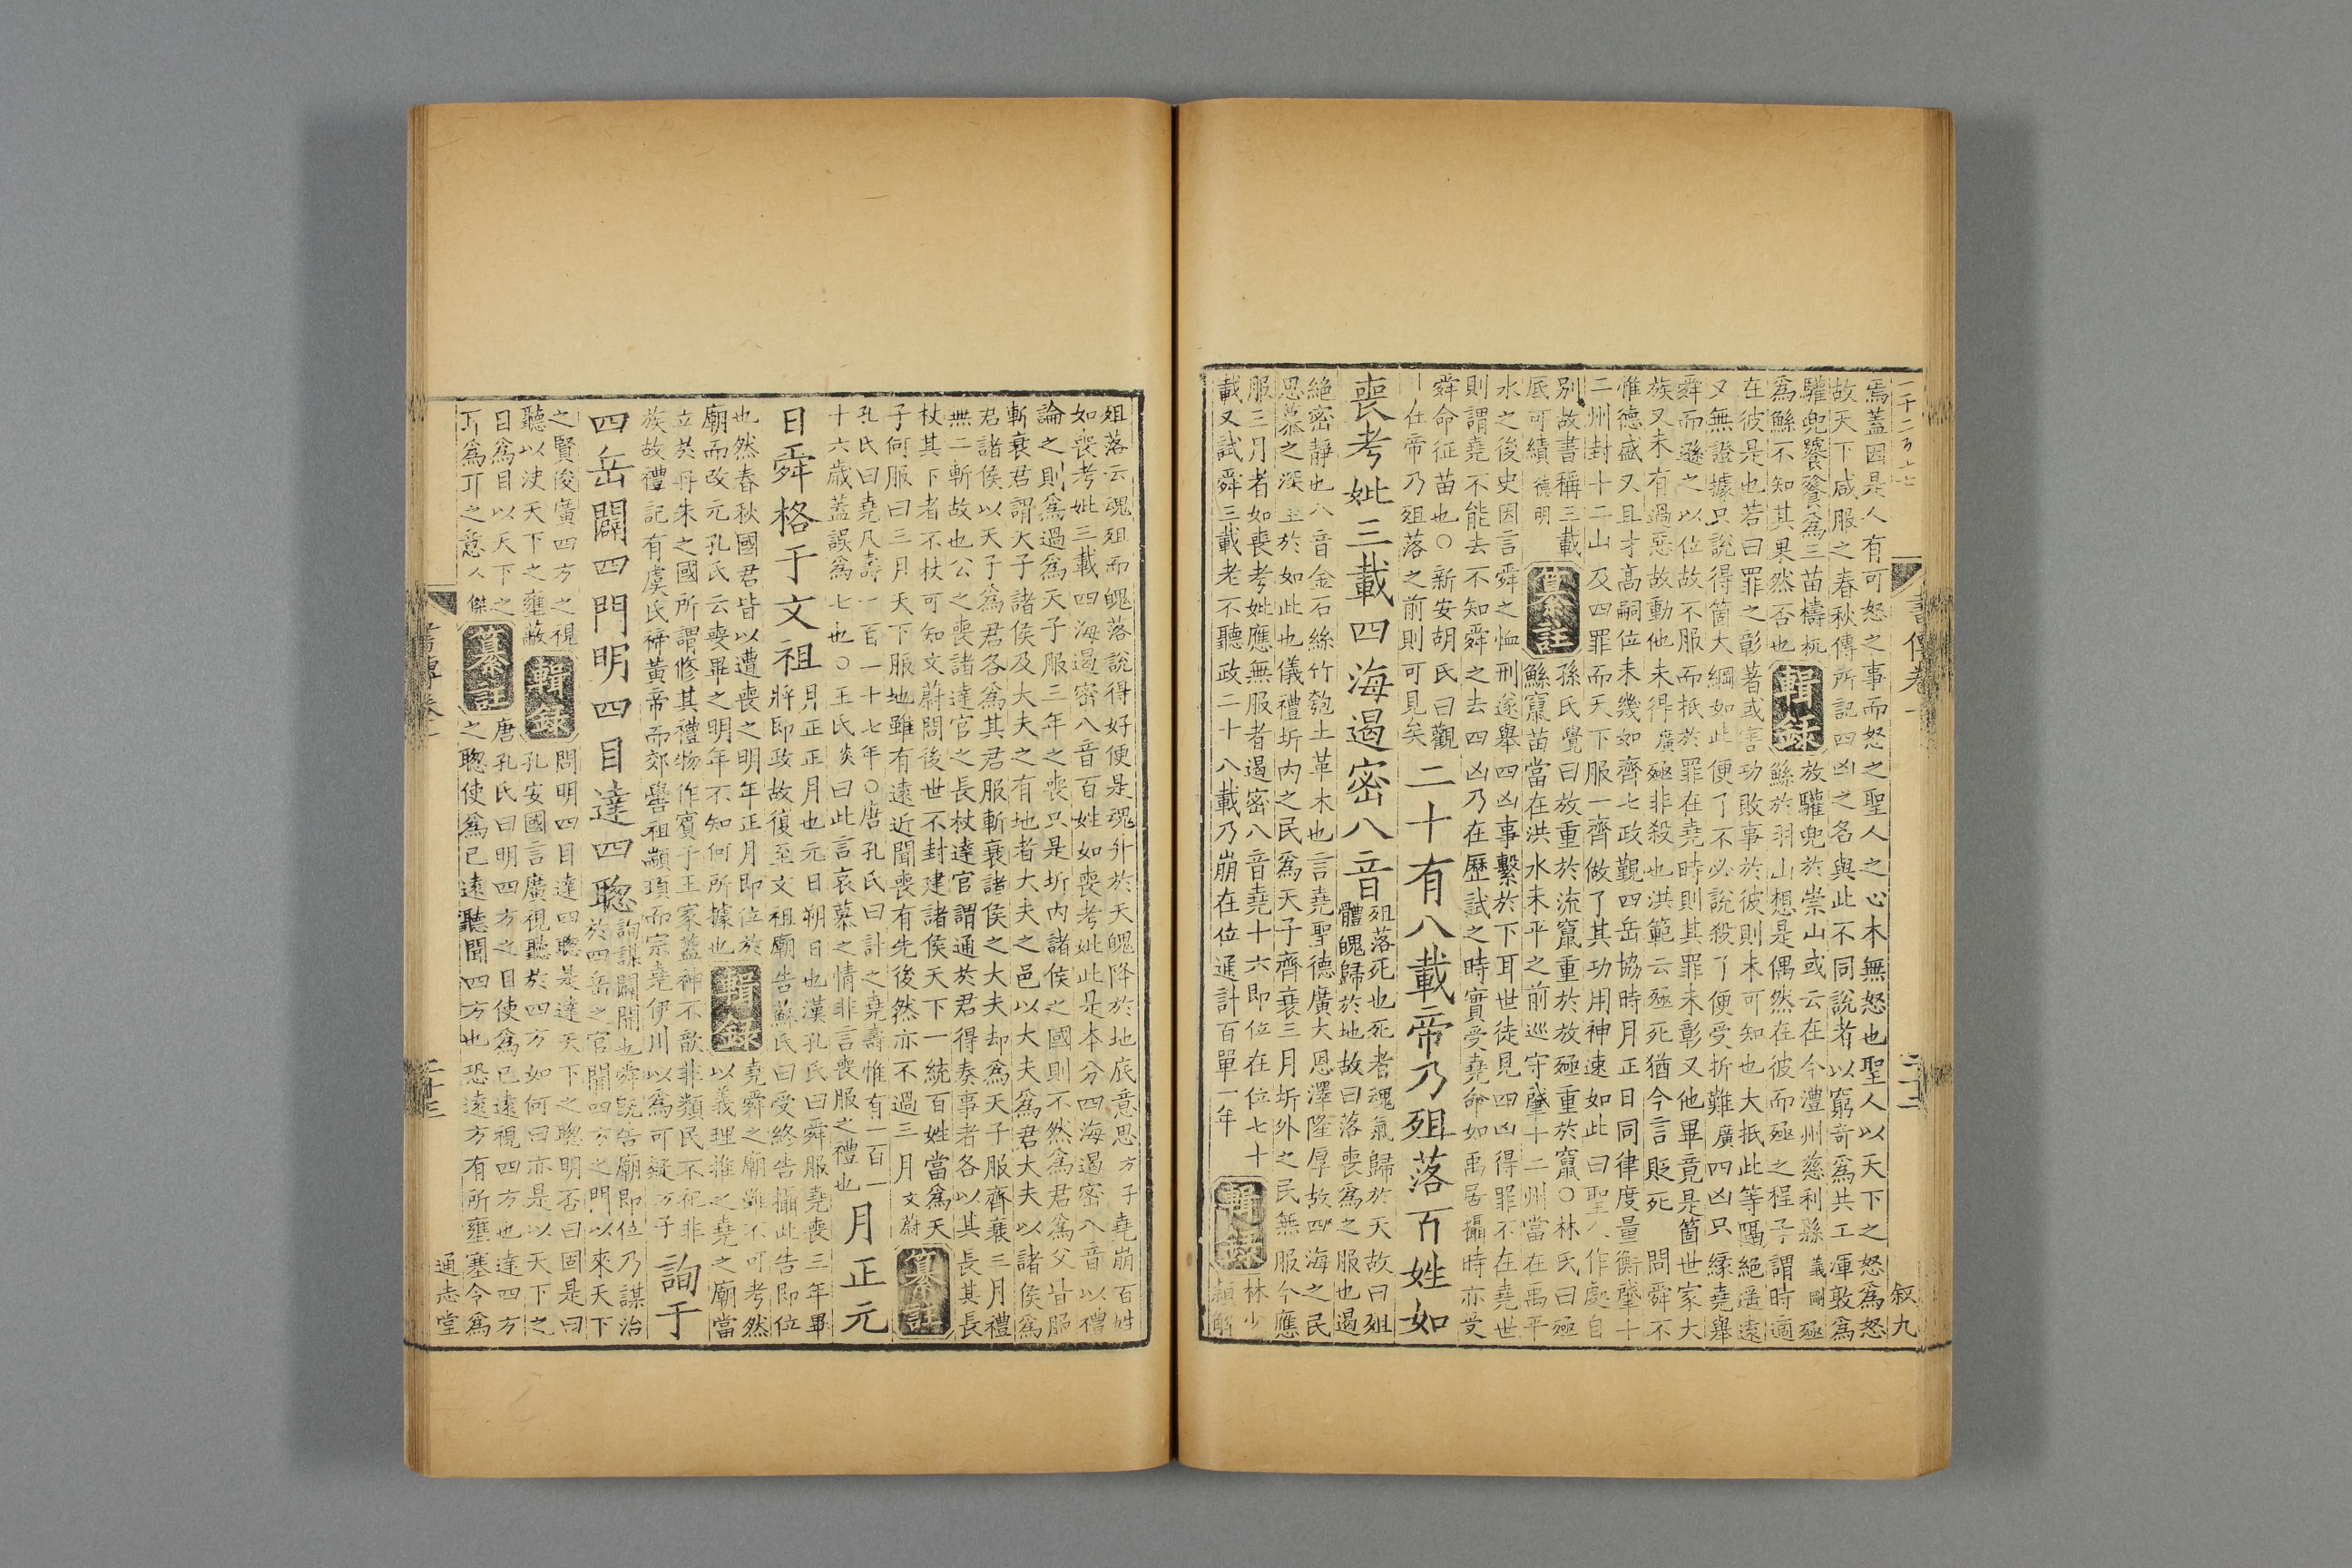 一千二百十七
書傳卷一
二十二
叙九
焉蓋因是人有可怒之事而怒之聖人之心本無怒也聖人以天下之怒爲怒
故天下咸服之春秋傳所記四凶之名與此不同說者以窮奇爲共工渾敦爲
驩兜饕餮爲三苗檮杌
爲鯀不知其果然否也
輯錄
放驩兜於崇山或云在今澧州慈利縣義剛殛
鯀於羽山想是偶然在彼而殛之程子謂時適
在彼是也若曰罪之彰著或害功敗事於彼則未可知也大抵此等隔絕遥遠
又無證據只說得箇大綱如此便了不必說殺了便受折難廣四凶只緣堯舉
舜而遜之以位故不服而抵於罪在堯時則其罪未彰又他畢竟是箇世家大
族又未有過惡故動他未得廣殛非殺也洪範云殛死猶今言貶死 問舜不
惟德盛又且才高嗣位未幾如齊七政覲四岳協時月正日同律度量衡肇十
二州封十二山及四罪而天下服一齊做了其功用神速如此曰聖人作處自
別故書稱三載
厎可績德明
纂註
孫氏覺曰放重於流竄重於放殛重於竄○林氏曰殛
鯀竄苗當在洪水未平之前巡守肇十二州當在禹平
水之後史因言舜之恤刑遂舉四凶事繫於下耳世徒見四凶得罪不在堯世
則謂堯不能去不知舜之去四凶乃在歷試之時實受堯命如禹居攝時亦受
舜命征苗也○新安胡氏曰觀
仕帝乃殂落之前則可見矣
二十有八載帝乃殂落百姓如
喪考妣三載四海遏密八音
殂落死也死者魂氣歸於天故曰殂
體魄歸於地故曰落喪爲之服也遏
絕密靜也八音金石絲竹匏土革木也言堯聖德廣大恩澤隆厚故四海之民
思慕之深至於如此也儀禮圻內之民爲天子齊衰三月圻外之民無服今應
服三月者如喪考妣應無服者遏密八音堯十六即位在位七十
載又試舜三載老不聽政二十八載乃崩在位通計百單一年
輯錄
林少
穎解
殂落云魂殂而魄落說得好便是魂升於天魄降於地底意思方子堯崩百姓
如喪考妣三載四海遏密八音百姓如喪考妣此是本分四海遏密八音以禮
論之則爲過爲天子服三年之喪只是圻內諸侯之國則不然爲君爲父皆服
斬衰君謂天子諸侯及大夫之有地者大夫之邑以大夫爲君大夫以諸侯爲
君諸侯以天子爲君各爲其君服斬衰諸侯之大夫却爲天子服齊衰三月禮
無二斬故也公之喪諸達官之長杖達官謂通於君得奏事者各以其長其長
杖其下者不杖可知文蔚問後世不封建諸侯天下一統百姓當爲天
子何服曰三月天下服地雖有遠近聞喪有先後然亦不過三月文蔚
纂註
孔氏曰堯凡壽一百一十七年○唐孔氏曰計之堯壽惟有一百一
十六歲蓋誤爲七也○王氏炎曰此言哀慕之情非言喪服之禮也
月正元
日舜格于文祖
月正正月也元日朔日也漢孔氏曰舜服堯喪三年畢
將即政故復至文祖廟告蘇氏曰受終告攝此告即位
也然春秋國君皆以遭喪之明年正月即位於
廟而改元孔氏云喪畢之明年不知何所據也
輯錄
堯舜之廟雖不可考然
以義理推之堯之廟當
立於丹朱之國所謂修其禮物作賓于王家蓋神不歆非類民不祀非
族故禮記有虞氏禘黃帝而郊嚳祖顓頊而宗堯伊川以爲可疑方子
詢于
四岳闢四門明四目達四聰
詢謀闢開也舜既告廟即位乃謀治
於四岳之官開四方之門以來天下
之賢俊廣四方之視
聽以決天下之壅蔽
輯錄
問明四目達四聰是達天下之聰明否曰固是曰
孔安國言廣視聽於四方如何曰亦是以天下之
目爲目以天下之
耳爲耳之意人傑
纂註
唐孔氏曰明四方之目使爲已遠視四方也達四方
之聰使爲已遠聽聞四方也恐遠方有所壅塞今爲
通志堂
書傳卷一
二十三